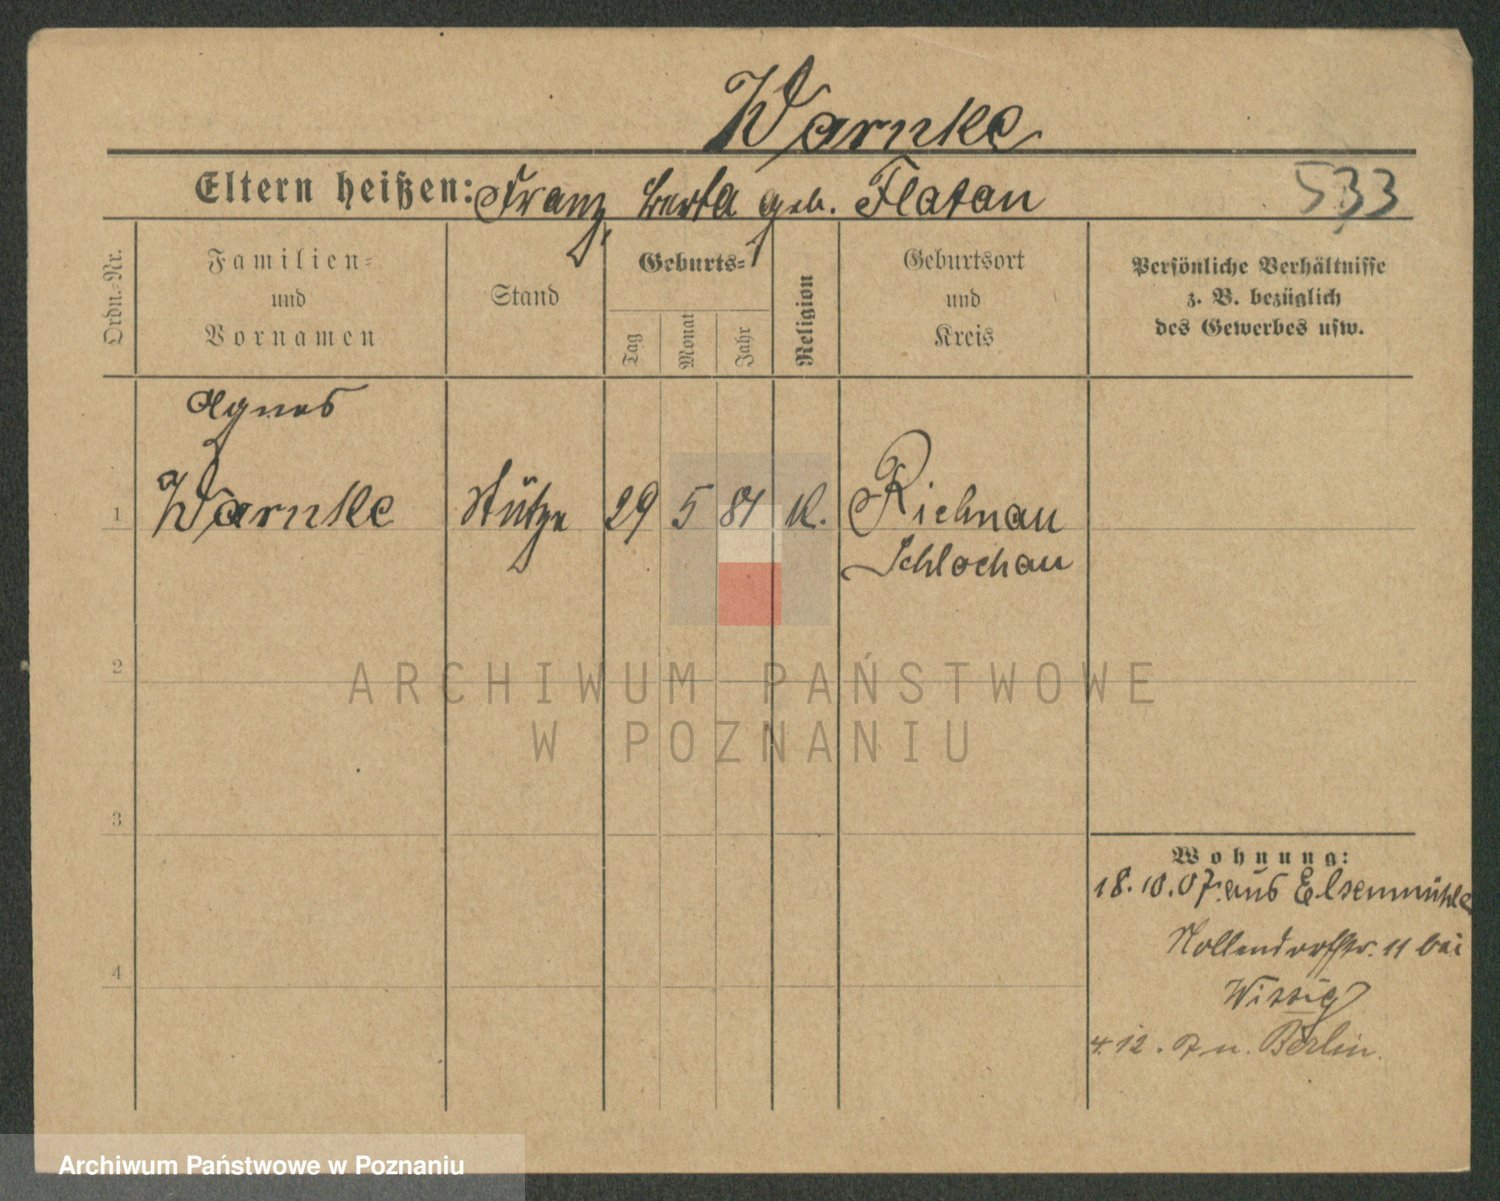 Warnke
Eltern heißen: Franz, Berta geb. Flatau
533
Ordn.-Nr.
Familien-
und
Vornamen
Stand
Geburts-
Tag
Monat
Jahr
Religion
Geburtsort
und
Kreis
Persönliche Verhältnisse
z. B. bezüglich
des Gewerbes usw.
Agnes
1 Warnke Stütze 29 5 81 K. Richnau
Schlochau
2
3
4
Wohnung:
18.10.07. aus Elsenmühle
Nollendorfstr. 11 bei
Wittig
4.12. 7 n. Berlin.
ARCHIWUM PAŃSTWOWE
W POZNANIU
Archiwum Państwowe w Poznaniu